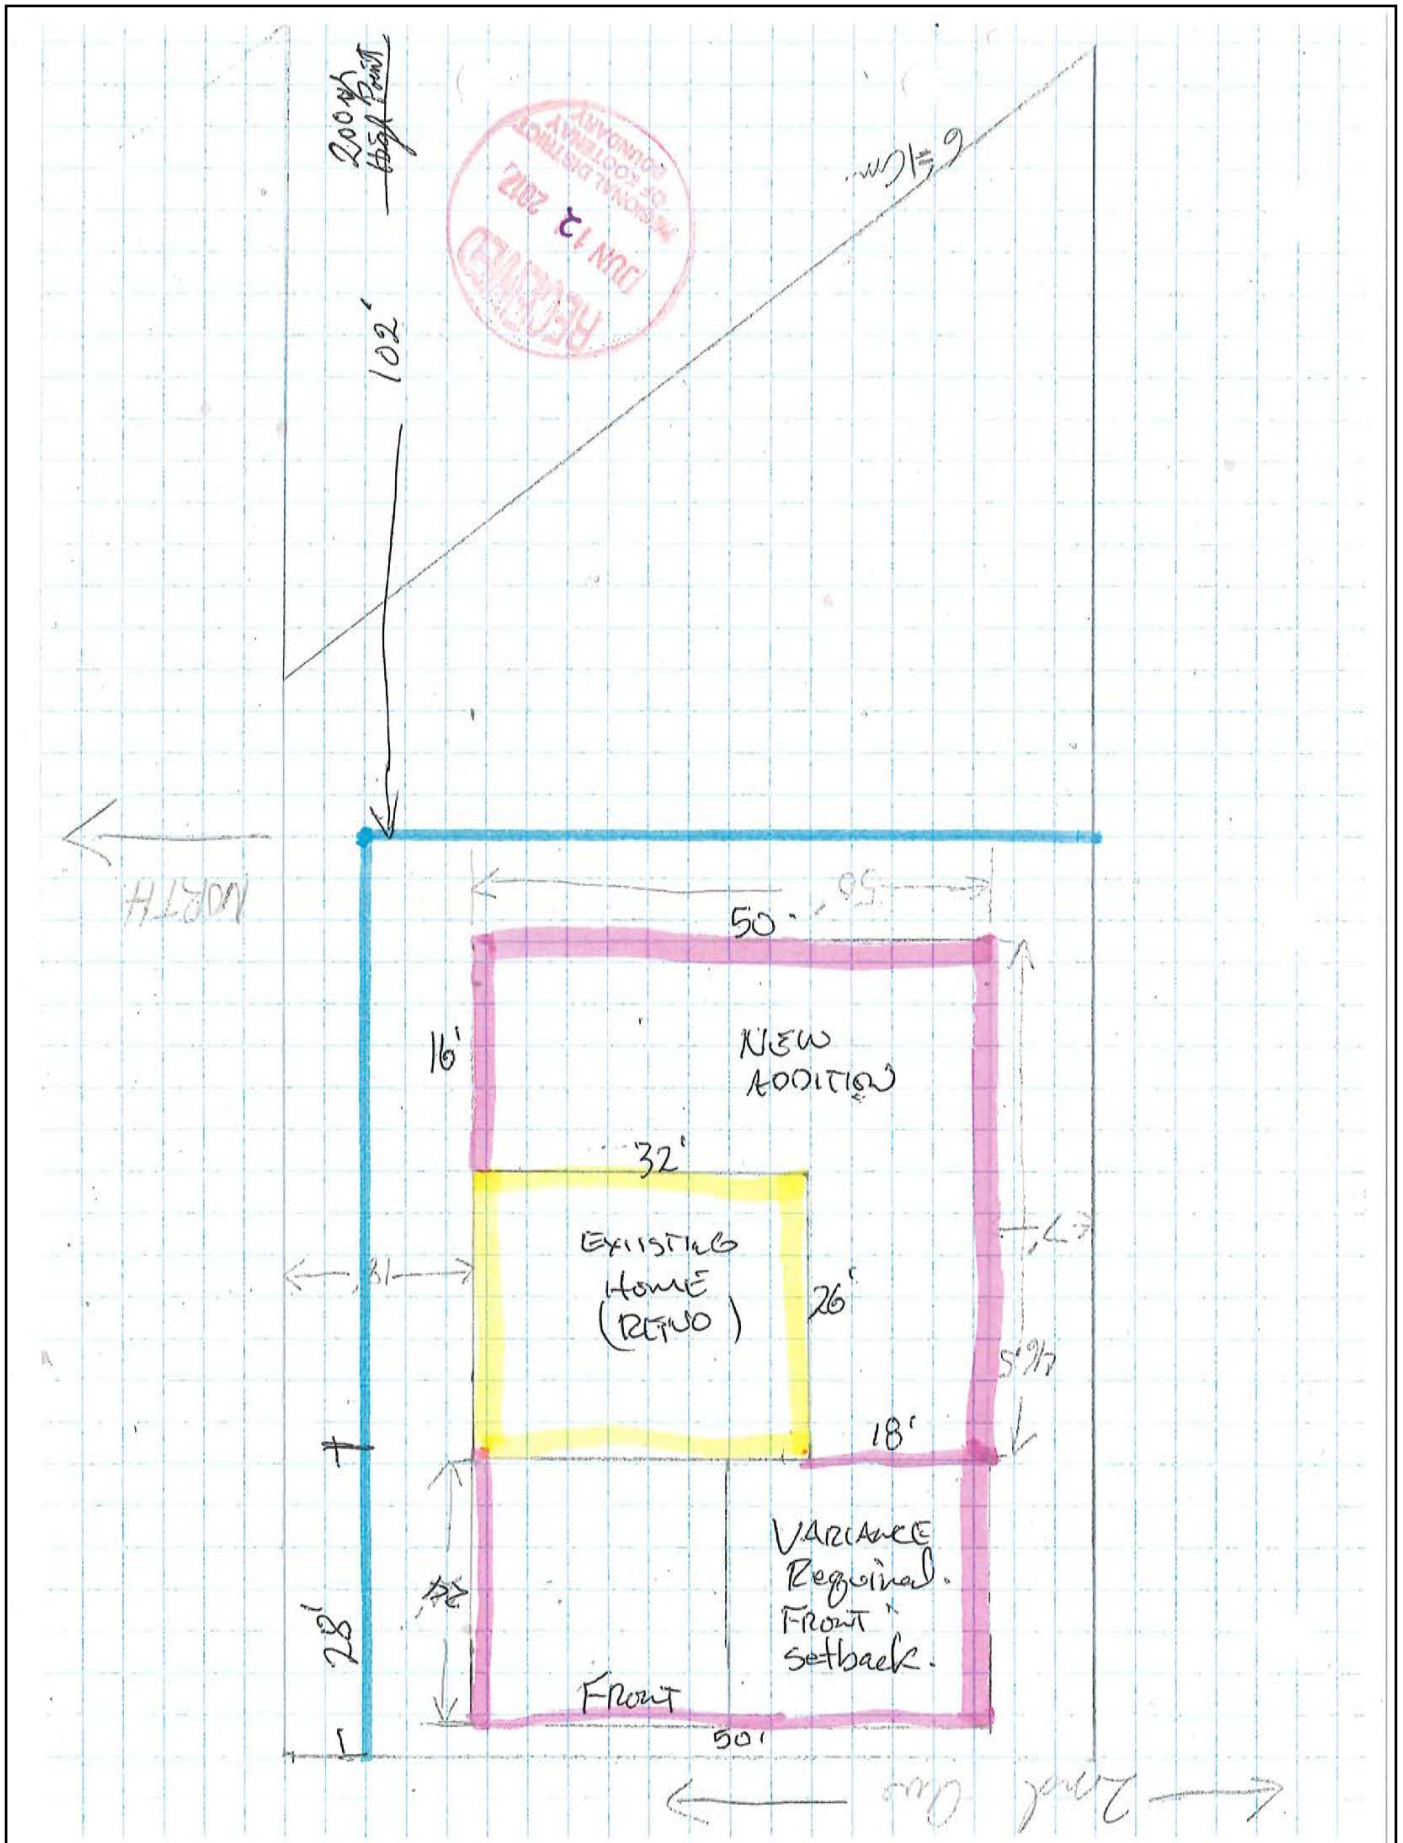 High Point
102'
6'=1cm.
RECEIVED
JUN 12 2012
REGIONAL DISTRICT
OF KOOTENAY
BOUNDARY
NORTH
50'
50'
16'
NEW
ADDITION
32'
EXIISTING
HOME
(RENO)
26'
18'
7'
46.5
18'
24'
28'
VARIANCE
Required.
FRONT
setback.
FRONT
50'
2nd Ave